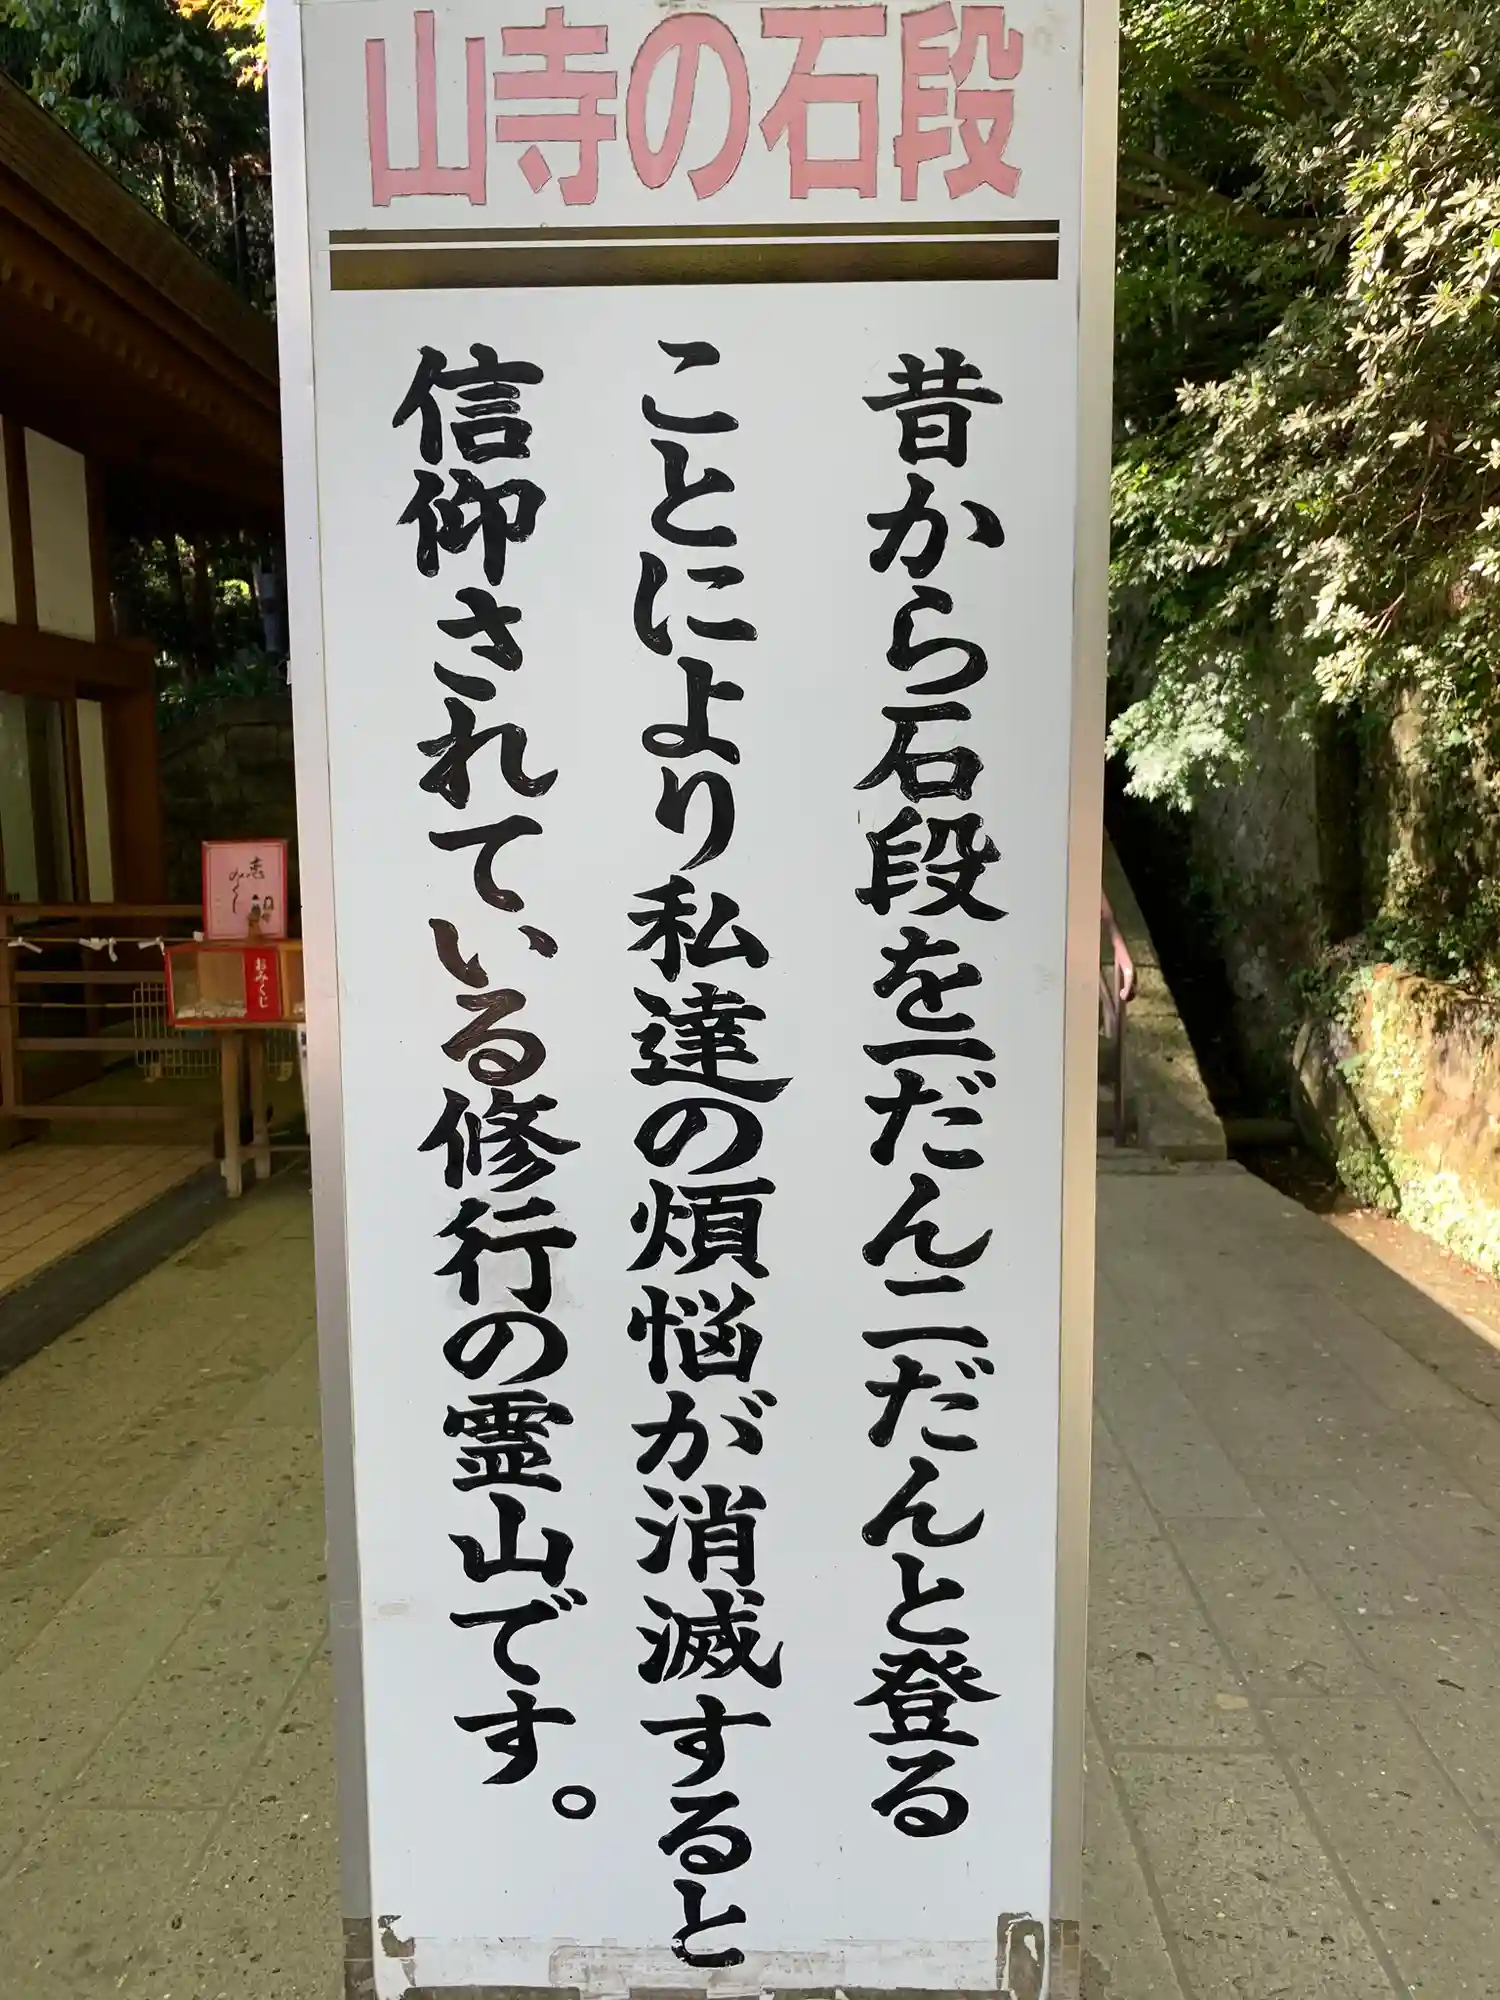 山寺の石段
昔から石段を一だん二だんと登る
ことにより私達の煩悩が消滅すると
信仰されている修行の霊山です。
おみくじ